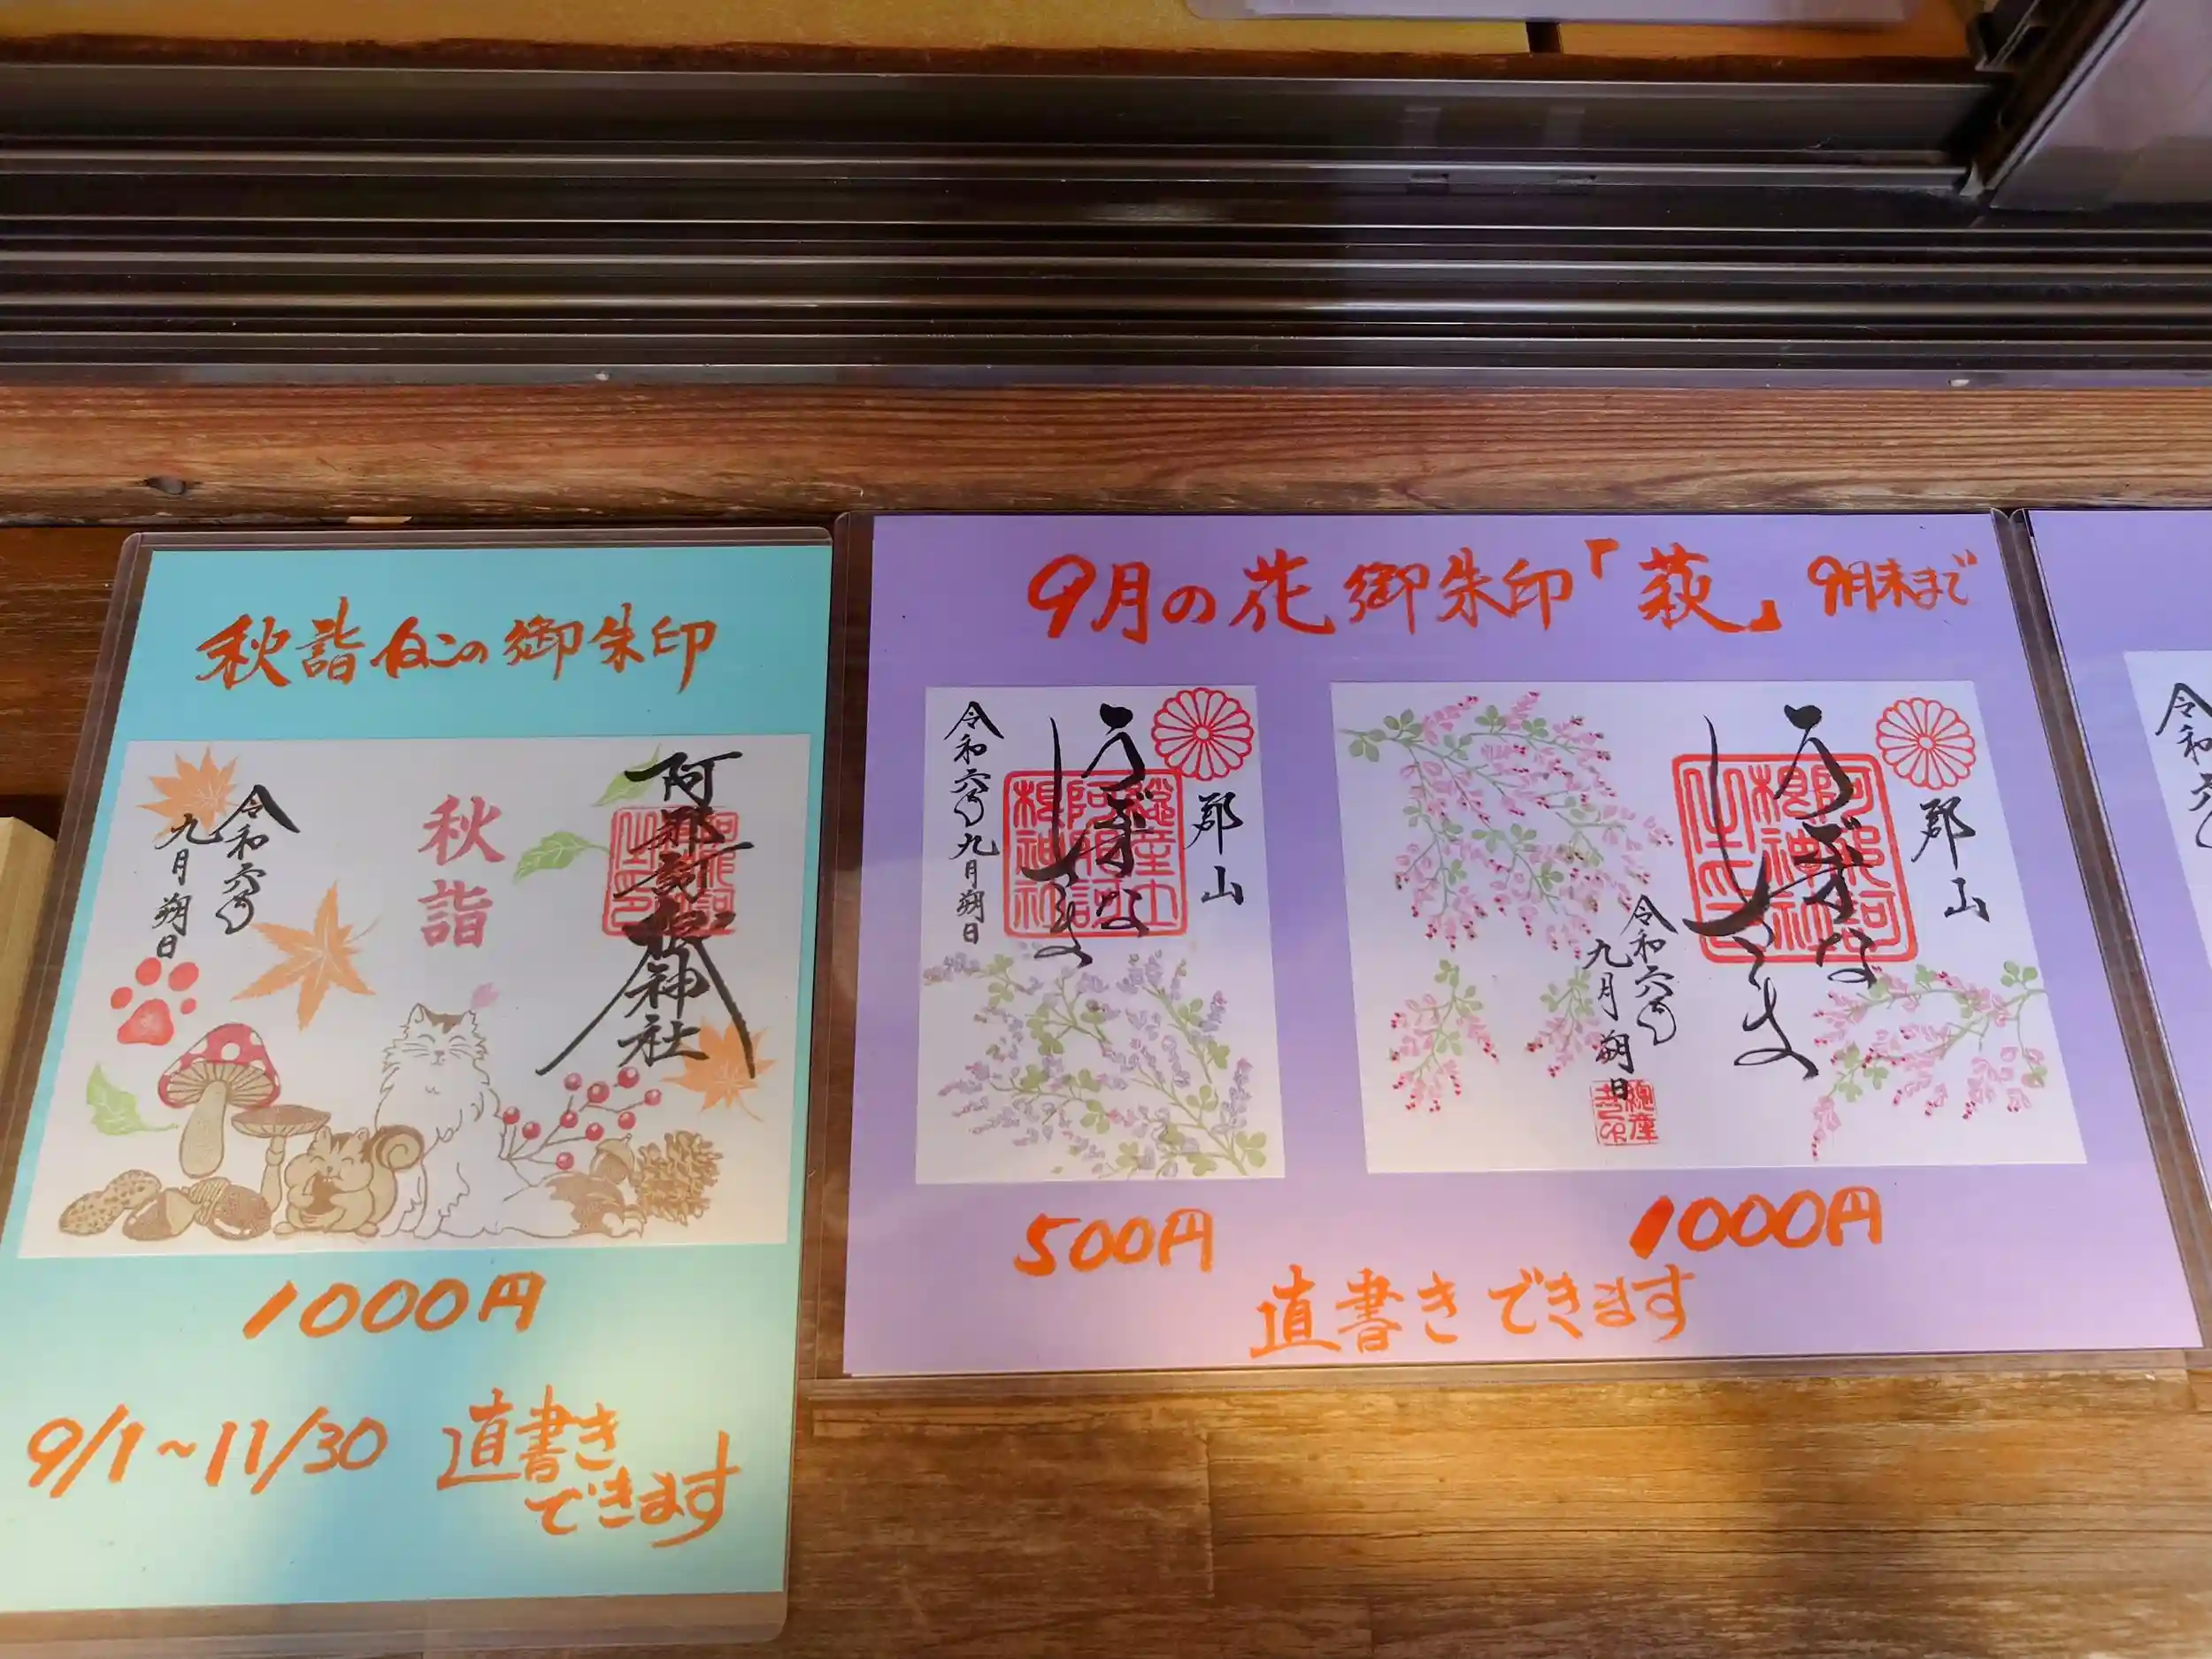 秋詣 白この御朱印
令和六年
九月朔日
秋詣
阿那訶根神社
1000円
9/1~11/30 直書き
できます
9月の花御朱印「萩」 9月末まで
郡山
うぶがな
令和六年九月朔日
500円
郡山
令和六年
九月朔日
1000円
直書きできます
令和